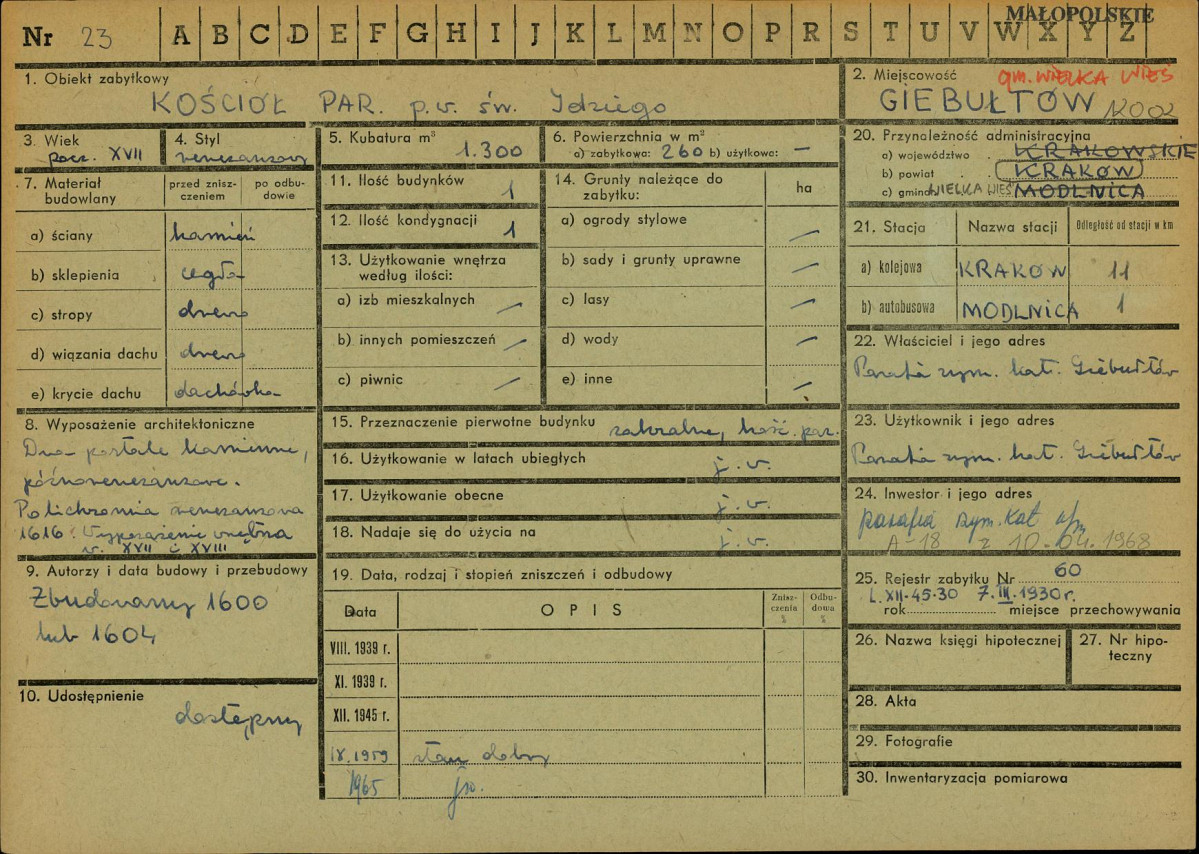 MAŁOPOLSKIE
Nr 23 A B C D E F G H I J K L M N O P R S T U V W X Y Z
1. Obiekt zabytkowy
KOŚCIÓŁ PAR. p.w. św. Idziego
2. Miejscowość gm. WIELKA WIEŚ
GIEBUŁTÓW 12002
3. Wiek
pocz. XVII
4. Styl
renesansowy
5. Kubatura m³
1.300
6. Powierzchnia w m²
a) zabytkowa: 260 b) użytkowa: —
20. Przynależność administracyjna
a) województwo KRAKOWSKIE
b) powiat KRAKÓW
c) gmina WIELKA WIEŚ MODLNICA
7. Materiał budowlany
przed znisz-
czeniem
po odbu-
dowie
a) ściany kamień
b) sklepienia cegła
c) stropy drewno
d) wiązania dachu drewno
e) krycie dachu dachówka
11. Ilość budynków 1
12. Ilość kondygnacji 1
13. Użytkowanie wnętrza
według ilości:
a) izb mieszkalnych —
b) innych pomieszczeń —
c) piwnic —
14. Grunty należące do
zabytku:
ha
a) ogrody stylowe —
b) sady i grunty uprawne —
c) lasy —
d) wody —
e) inne —
21. Stacja Nazwa stacji Odległość od stacji w km
a) kolejowa KRAKÓW 11
b) autobusowa MODLNICA 1
22. Właściciel i jego adres
Parafia rzym. kat. Giebułtów
8. Wyposażenie architektoniczne
Dwa portale kamienne,
późnorenesansowe.
Polichromia renesansowa
1616. Wyposażenie wnętrza
w. XVII i XVIII
15. Przeznaczenie pierwotne budynku sakralne, kość. par.
16. Użytkowanie w latach ubiegłych j.w.
17. Użytkowanie obecne j.w.
18. Nadaje się do użycia na j.w.
23. Użytkownik i jego adres
Parafia rzym. kat. Giebułtów
24. Inwestor i jego adres
parafia rzym. kat
A-18 z 10.04.1968
9. Autorzy i data budowy i przebudowy
Zbudowany 1600
lub 1604
10. Udostępnienie
dostępny
19. Data, rodzaj i stopień zniszczeń i odbudowy
Data OPIS
Znisz-
czenia
%
Odbu-
dowa
%
VIII. 1939 r.
XI. 1939 r.
XII. 1945 r.
IX.1959 stan dobry
1965 jw.
25. Rejestr zabytku Nr 60
L.XII-45-30 7.III.1930 r.
rok miejsce przechowywania
26. Nazwa księgi hipotecznej
27. Nr hipo-
teczny
28. Akta
29. Fotografie
30. Inwentaryzacja pomiarowa